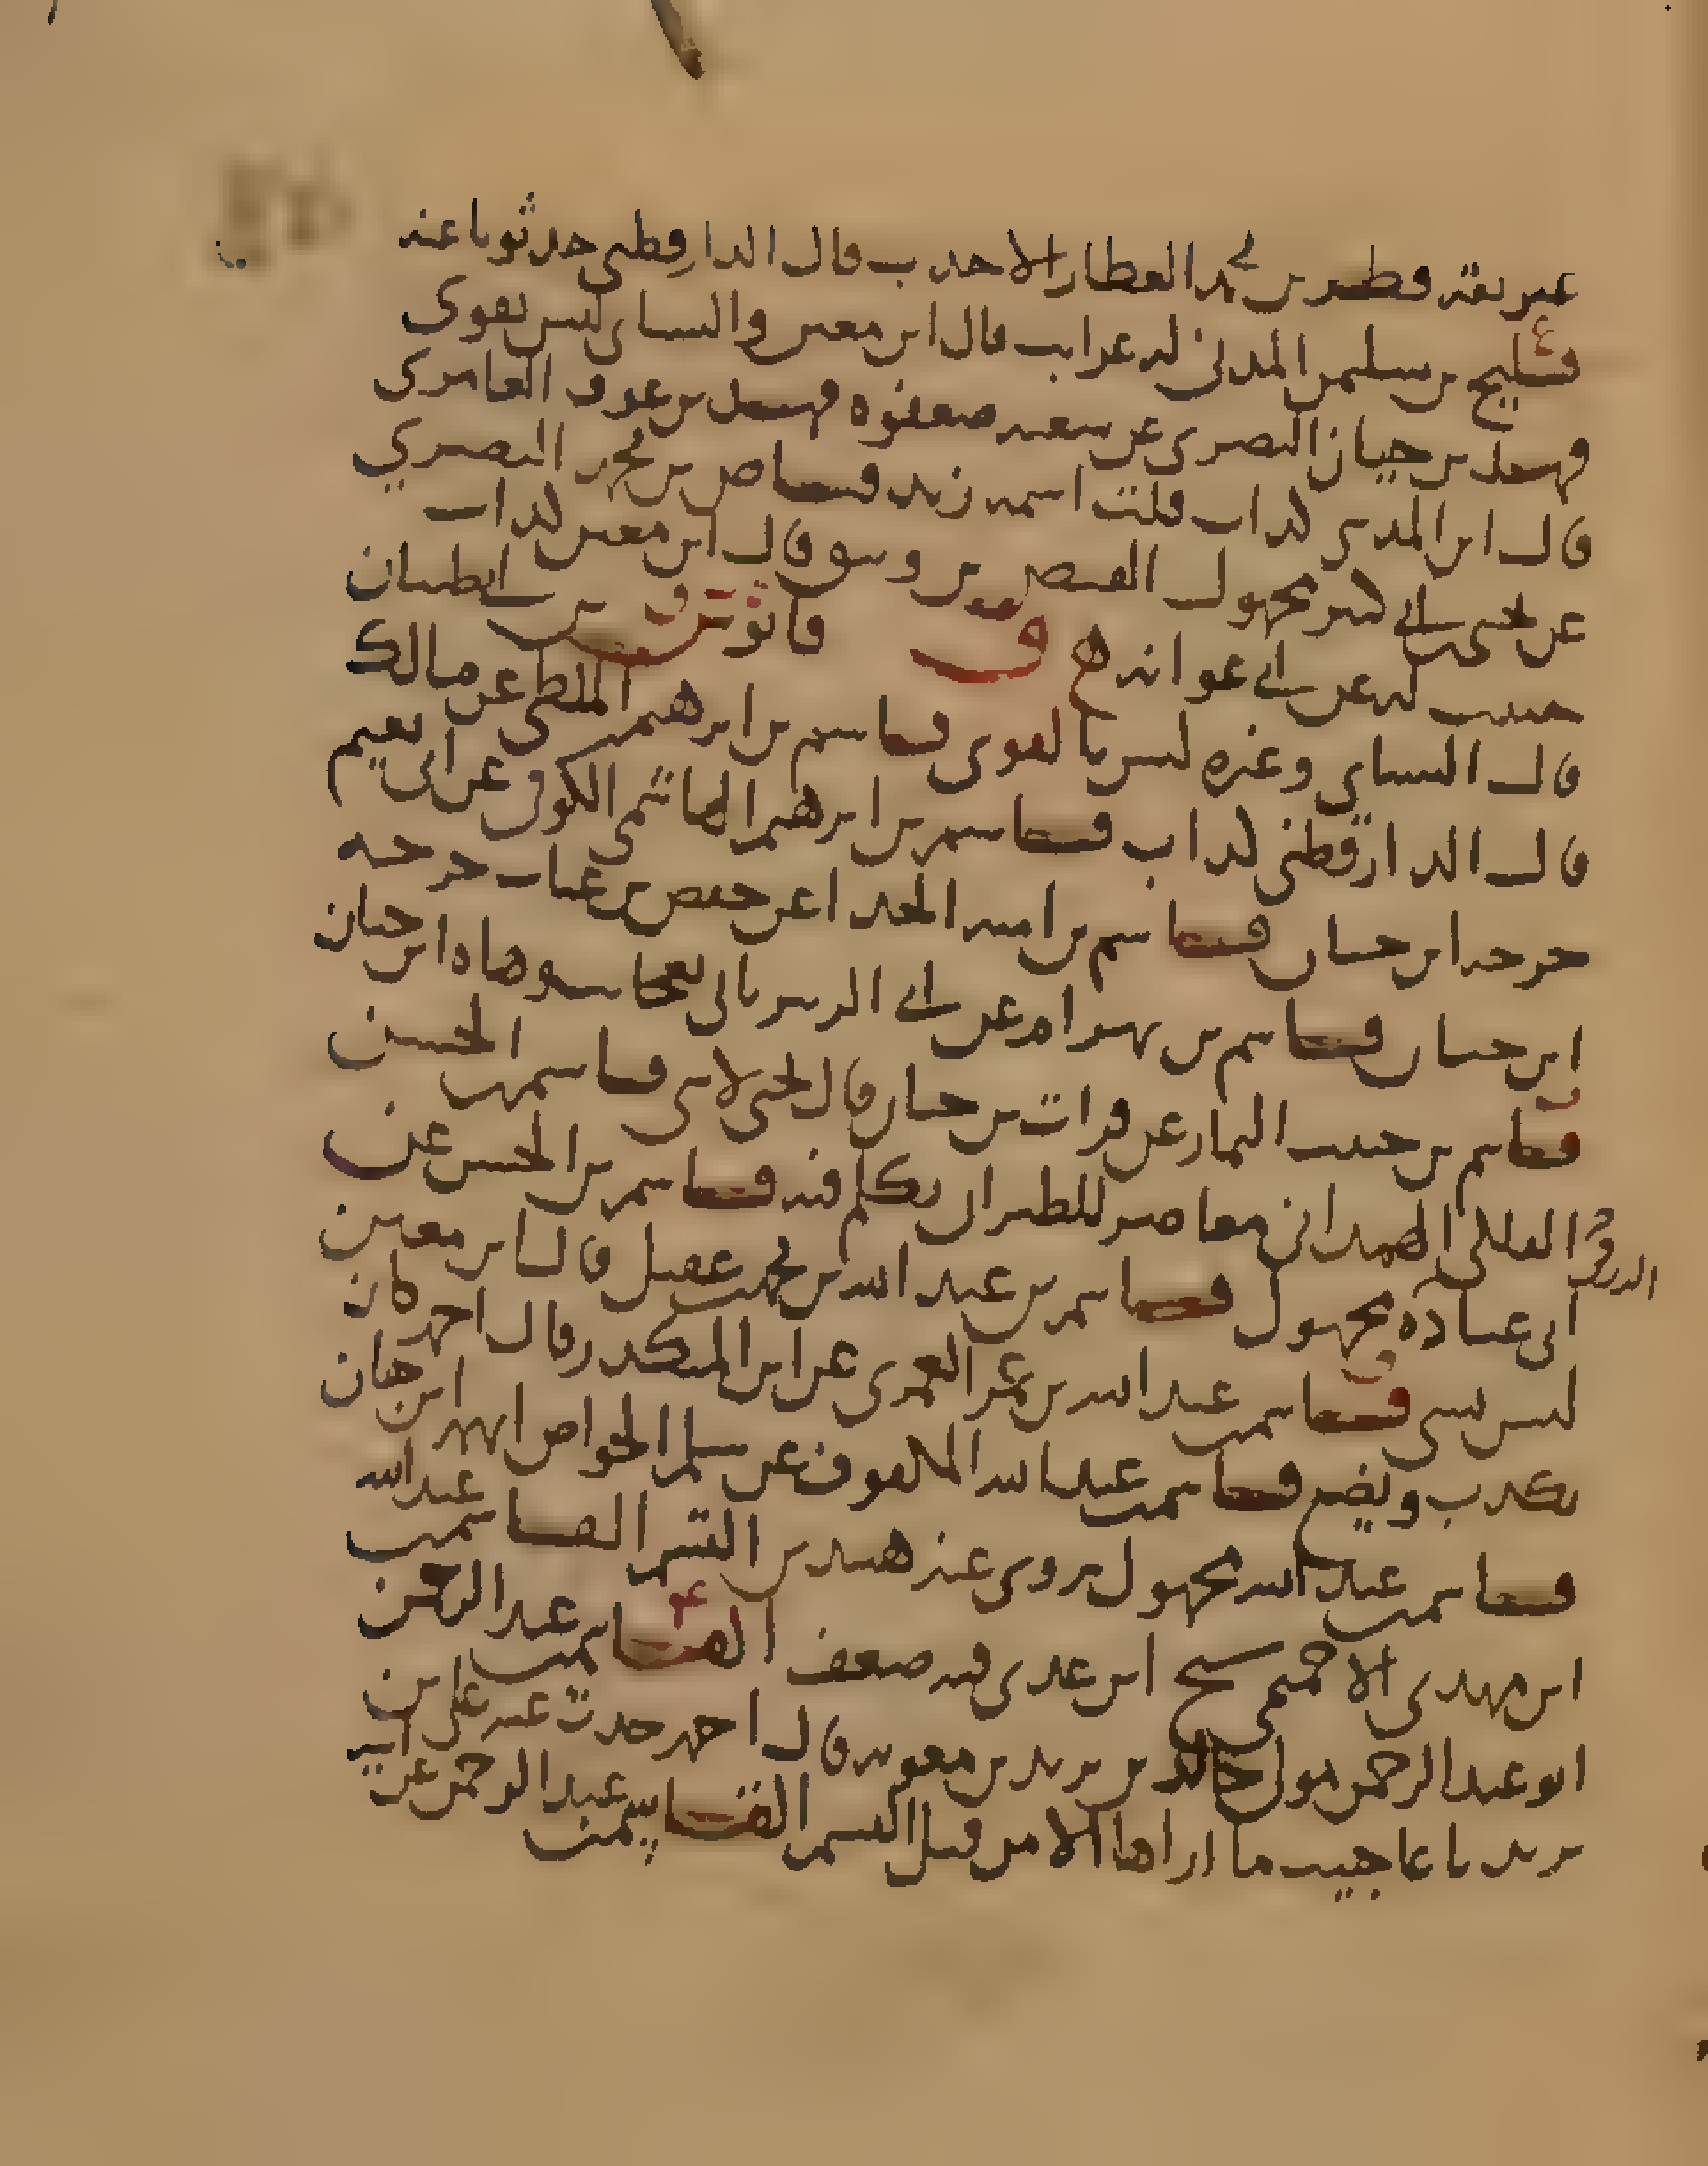 غير ثقة فطر بن محمد العطار الاحدب قال الدارقطني حدثونا عنه
فليح بن سليمن المدني له غرايب قال ابن معين والنساي ليس بقوي
فهد بن حيان البصري عن شعبه ضعفوه فهد بن عوف العامري
قال ابن المديني كذاب قلت اسمه زيد فياض بن محمد البصري
عن يحيى بن ابي كثير مجهول الفيض بن وسق قال ابن معين كذاب
خبيث له عن ابي عوانه ق قابوس بن ابي ظبيان
قال النساي وغيره ليس بالقوي قاسم بن ابرهيم الملطي عن مالك
قال الدارقطني كذاب قاسم بن ابرهيم الهاشمي الكوفي عن ابي نعيم
جرحه ابن حبان قاسم بن اميه الحذا عن حفص بن غياث جرحه
ابن حبان قاسم بن بهرام عن ابي الزبير بالعجايب وهاه ابن حبان
قاسم بن حبيب التمار عن فرات بن حيان قال يحيى لاشي قاسم بن الحسن
الهمداني معاصر للطبراني تكلم فيه قاسم بن الحسن عن
ابي عباده مجهول قاسم بن عبد الله بن محمد بن عقيل قال ابن معين
ليس بشي قاسم بن عبد الله بن عمر العمري عن ابن المنكدر قال احمد كان
يكذب ويضع قاسم بن عبد الله المكفوف عن سلم الخواص اتهمه ابن حبان
قاسم بن عبد الله مجهول يروي عنه القاسم بن عبد الله
ابن مهدي الاخميمي شيخ ابن عدي فيه ضعف القاسم بن عبد الرحمن
ابو عبد الرحمن مولى خالد بن يزيد بن معويه قال احمد حدث عنه علي بن
يزيد باعاجيب ما اراها الا من قبل القسم القاسم بن عبد الرحمن عن ابيه